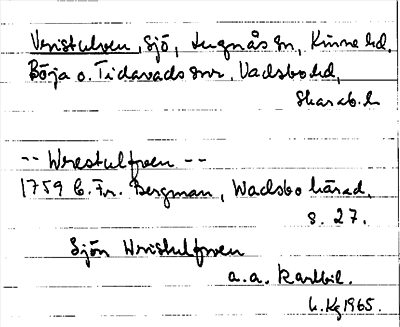 Vristulven, sjö, Lugnås sn, Kinne hd,
Börja o. Tidavads snr, Vadsbo hd,
Skarab. l.
-- Wrestulfwen --
1759 C. Fr. Bergman, Wadsbo härad,
s. 27.
Sjön Wristulfwen
a.a. kartbil.
1965.